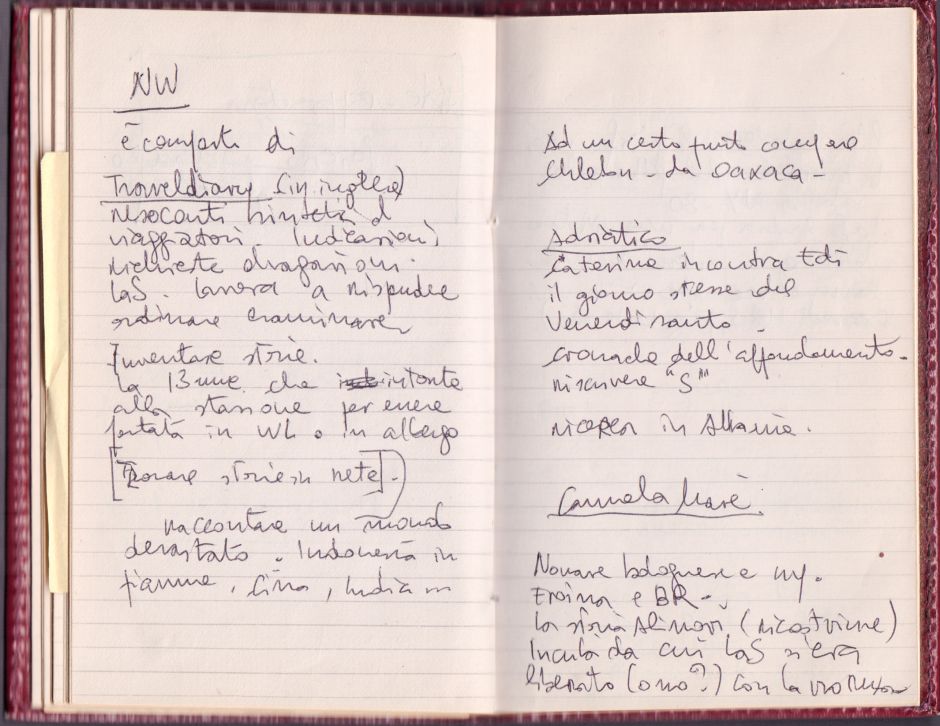 NW
è composto di
Traveldiary (in inglese)
resoconti sintetici di
viaggiatori. Indicazioni
richieste divagazioni.
LaS. lavora a rispondere
ordinare esaminare
Inventare storie.
La 13enne che intontita
alla stazione per essere
portata in WL o in albergo
[Trovare storie in rete].
raccontare un mondo
devastato. Indonesia in
fiamme, Cina, India in
Ad un certo punto compare
da Oaxaca -
Adriatico
Caterina incontra Edi
il giorno stesso del
Venerdì santo -
cronaca dell'affondamento.
riscrivere "S"
ricerca in Albania.
Nomare bolognese e ny.
Eroina e BR -
la storia Alinovi (ricostruirne)
Incubi da cui LaS s'era
liberato (o no?) con la